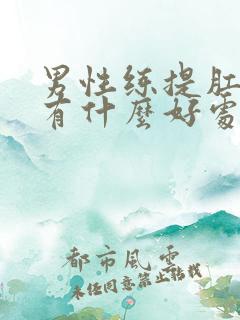 男性练提肛
有什麼好處
都市風雲
未经同意禁止转载